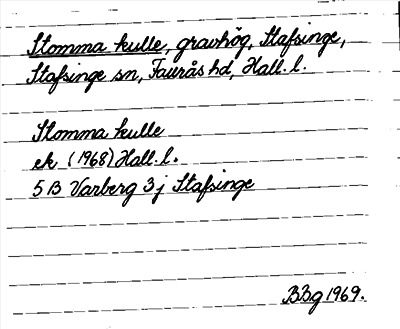 Stomma kulle, gravhög, Stafsinge,
Stafsinge sn, Faurås hd, Hall. l.
Stomma kulle
ek (1968) Hall. l.
5B Varberg 3j Stafsinge
BBg 1969.